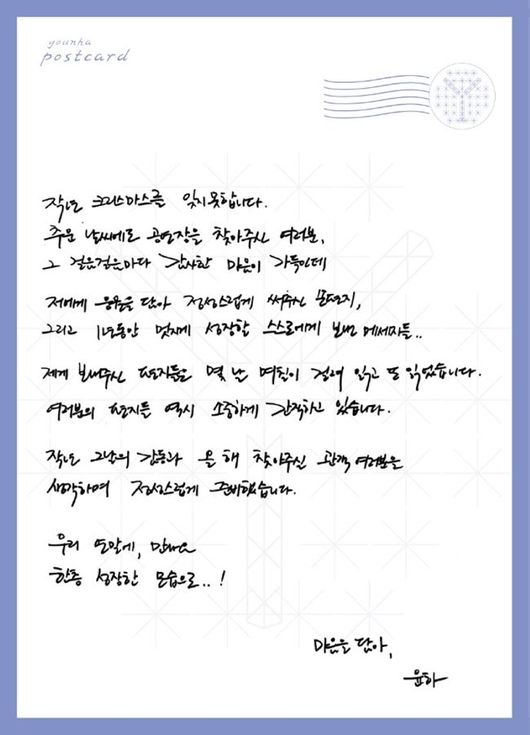 younha
postcard
작년 크리스마스를 잊지못합니다.
추운 날씨에도 공연장을 찾아주신 여러분,
그 걸음걸음마다 감사한 마음이 가득인데
저에게 응원을 담아 정성스럽게 써주신 손편지,
그리고 1년동안 멋지게 성장할 스스로에게 보낸 메세지들..
제게 보내주신 편지들은 몇 날 며칠이 걸려 읽고 또 읽었습니다.
여러분의 편지들 역시 소중하게 간직하고 있습니다.
작년 그날의 감동과 올 해 찾아주신 관객 여러분을
생각하며 정성스럽게 준비했습니다.
우리 연말에, 만나요
한층 성장한 모습으로..!
마음을 담아,
윤하